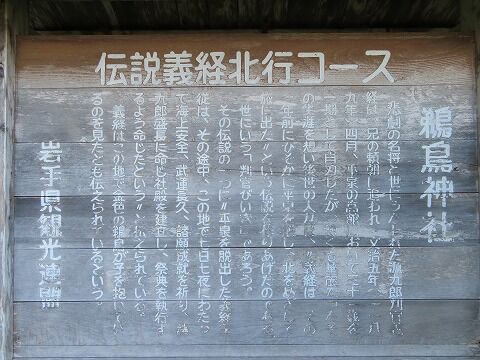 伝説義経北行コース
鵜鳥神社
悲劇の名将と世にうたわれた源九郎判官義
経は、兄の頼朝に追われ、文治五年
九年）四月、平泉の高館において三十一歳を
一期として自刃したが、
の生涯を想い後世の人々は、"義経は
年前にひそかに平泉を脱し、北をめざして
旅に出た"という伝説を作りあげたのである。
世にいう「判官びいき」であろう。
その伝説の一つに"平泉を脱出した義経主
従は、その途中、この地で七日七夜にわたっ
て海上安全、武運長久、諸願成就を祈り、
九郎盛長に命じ社殿を建立し、祭典を執行す
るよう命じたという"と伝えられている。
義経はこの地で金色の鵜鳥が子を抱いてい
るのを見たとも伝えられているという。
岩手県観光連盟